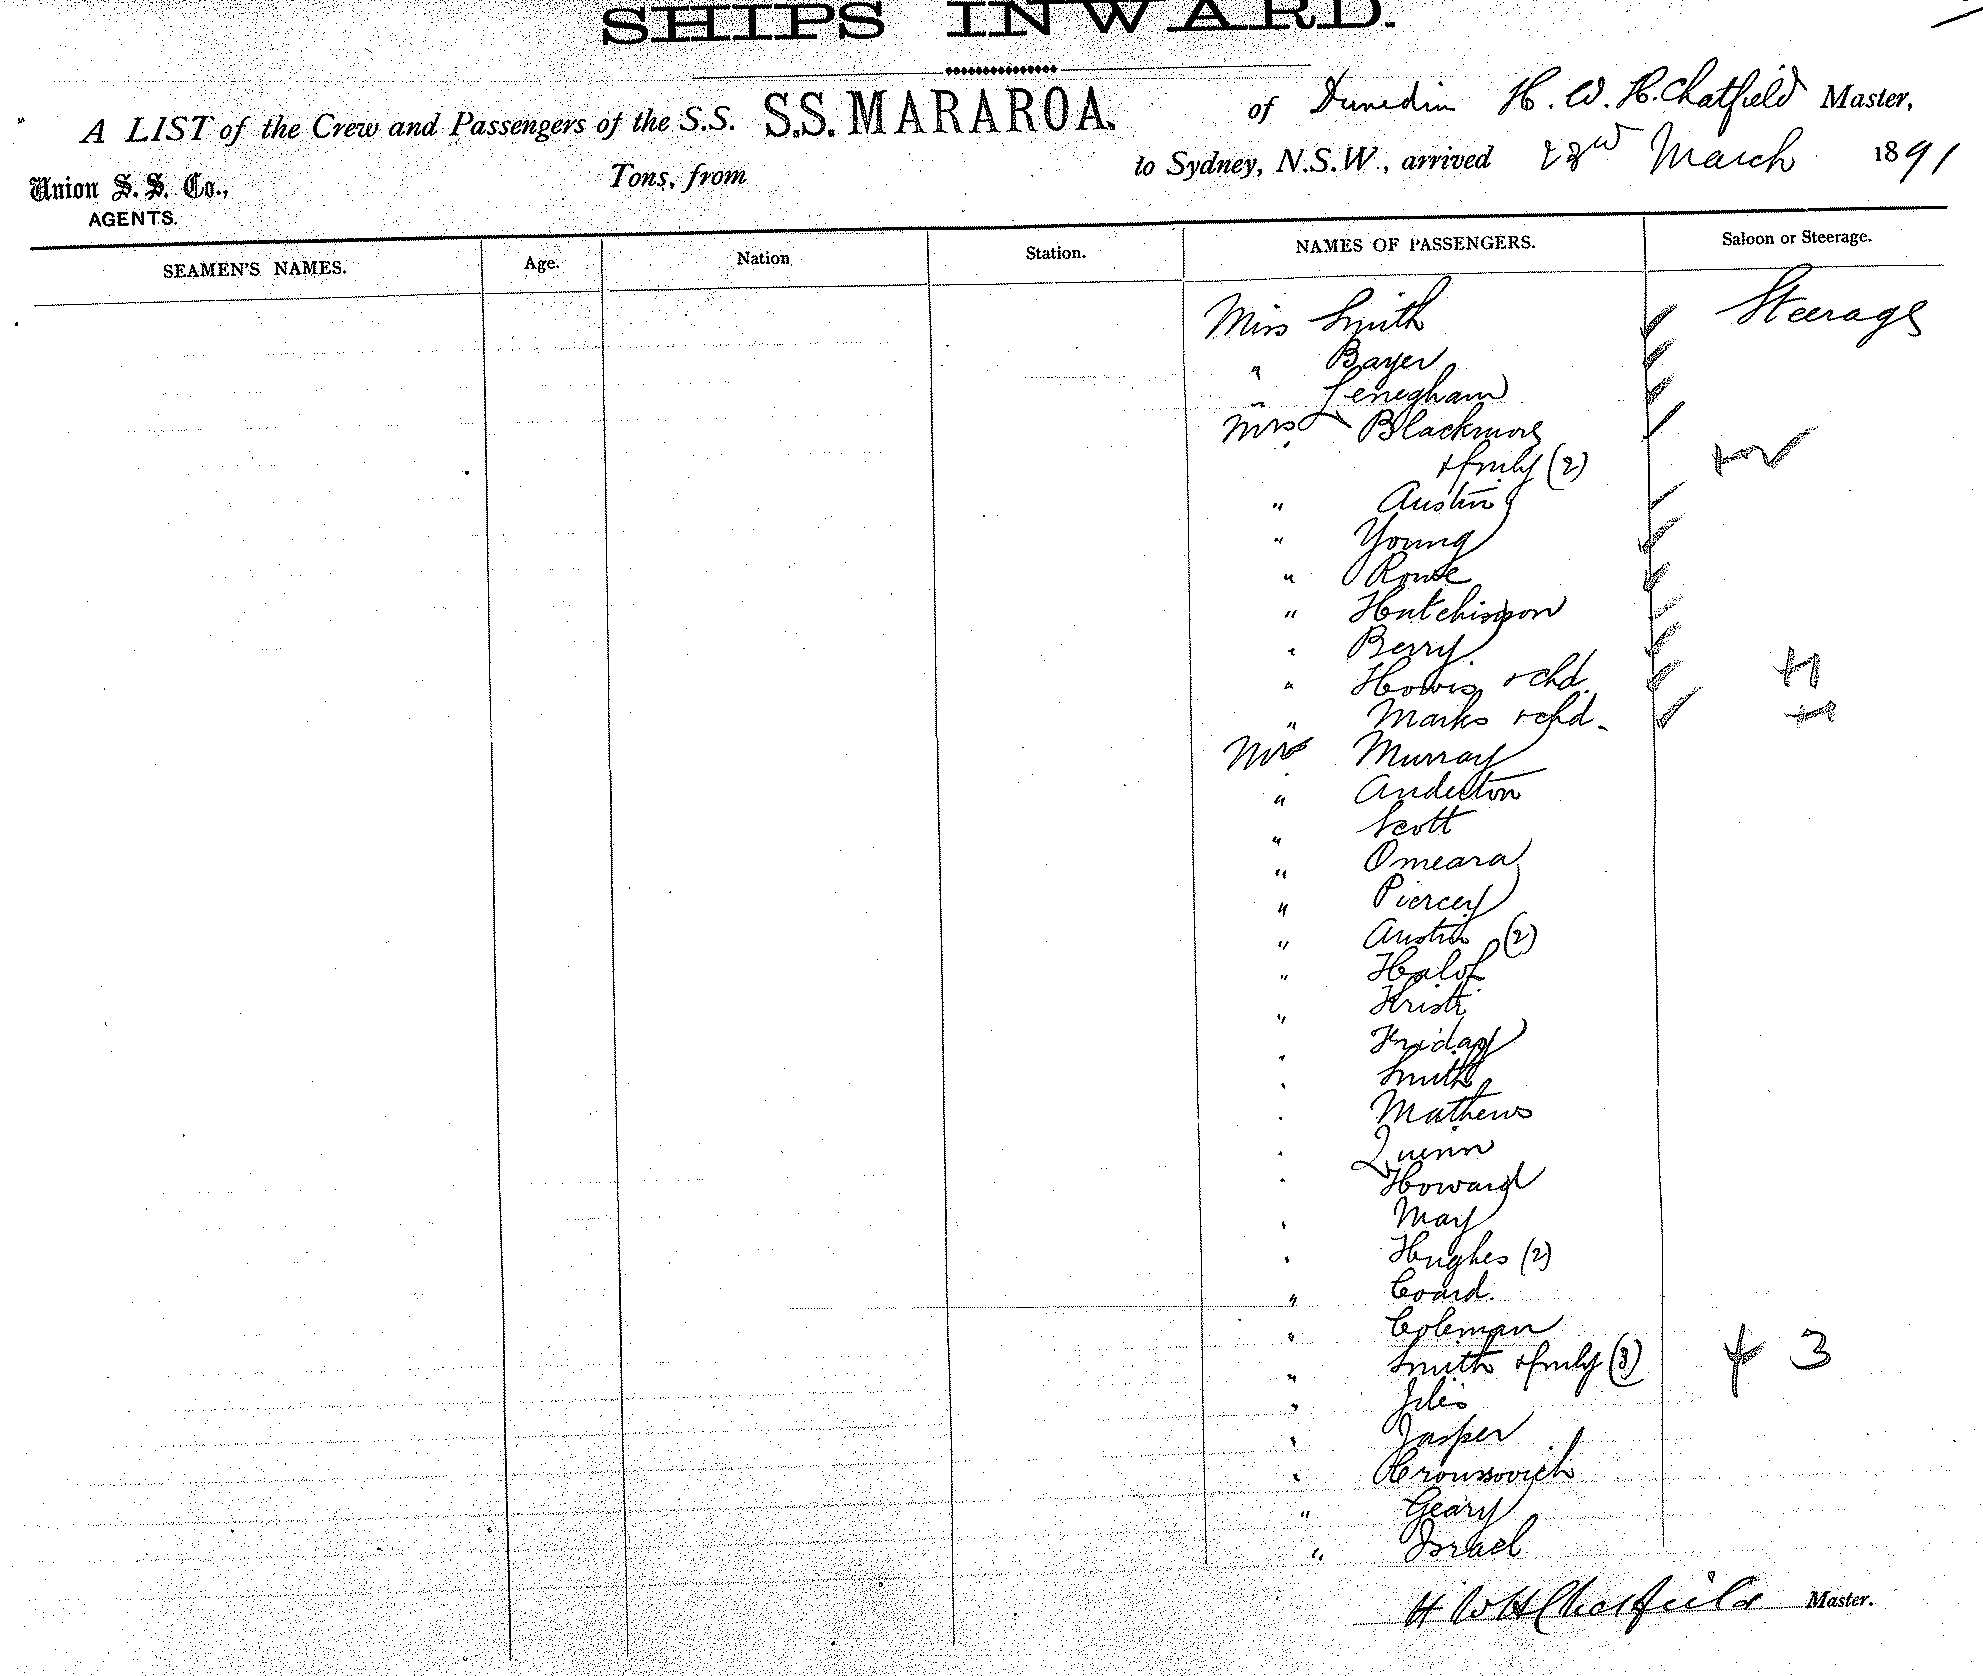 SHIPS INWARD.
A LIST of the Crew and Passengers of the S.S. S.S. MARAROA. of Dunedin H. W. H. Chatfield Master,
Union S. S. Co., AGENTS. Tons, from to Sydney, N.S.W., arrived 23rd March 1891
SEAMEN'S NAMES. Age. Nation Station. NAMES OF PASSENGERS. Saloon or Steerage.
Miss Smith Steerage
" Bayer
" Lenegham
Mrs Blackmore
+ fmly (2)
" Austin
" Young
" Rowe
" Hutchison
" Berry
" Howis + chd.
" Marks + chd.
Murray
" Anderton
" Scott
" Omeara
" Piercey
" Austin (2)
"
" Kristi
" Friday
" Smith
" Mathews
" Quinn
" Howard
" May
" Hughes (2)
" Coard.
" Coleman
" Smith + fmly (3) + 3
" Giles
" Jasper
"
" Geary
" Israel
H W H Chatfield Master.